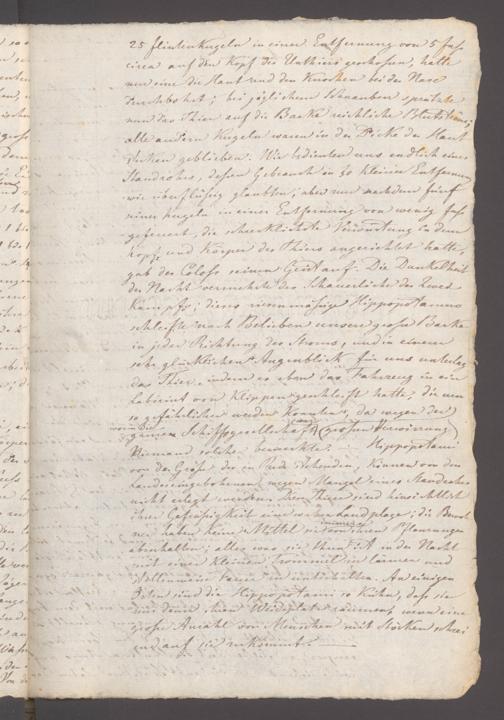 25 Flintenkugeln in einer Entfernung von 5 Fuss
circa auf den Kopf des Unthiers geschossen, hatte
nur eine die Haut und den Knochen bei der Nase
durchbohrt; bei jeglichem Schnauben spritzte
nun das Thier auf die Barke reichliche Blutströme;
alle andern Kugeln waren in der Dicke der Haut
stecken geblieben. Wir bedienten uns endlich eines
Standrohrs, dessen Gebrauch in so kleiner Entfernung
wir überflüssig glaubten; aber nur nachdem fünf
seiner Kugeln in einer Entfernung von wenig Fuss
gefeuert, die schrecklichste Verwüstung in dem
Kopf und Körper des Thiers angerichtet hatte,
gab der Coloss seinen Geist auf. Die Dunkelheit
der Nacht vermehrte das Schauerliche des Zwei
Kampfs; dieses riesenmässige Hippopotamus
schleifte nach Belieben unsere grosse Barke
in jeder Richtung des Stroms, und in einem
sehr glücklichen Augenblick für uns unterlag
das Thier, indem es eben das Fahrzeug in ein
Labirint von Klippen geschleift hatte, die um
so gefährlicher werden konnten, da wegen der
grossen Verwirrung
Niemand solche bemerkte. Hippopotami
von der Grösse des in Rede stehenden, können von den
Landeseingebohrnen wegen Mangel eines Standrohrs
nicht erlegt werden. Diese Thiere sind hinsichtlich
ihrer Gefrässigkeit eine wahre Landplage; die Bewoh
ner haben keine Mittel sie von ihren Pflanzungen
abzuhalten; alles was sie thun ist in der Nacht
mit einer kleinen Trommel zu lärmen und
Feuer zu unterhalten. An einigen
Orten sind die Hippopotami so kühn, dass sie
nur dann ihren Weideplatz räumen, wenn eine
grosse Anzahl von Menschen mit Stöcken schrei
end auf sie zukommt.